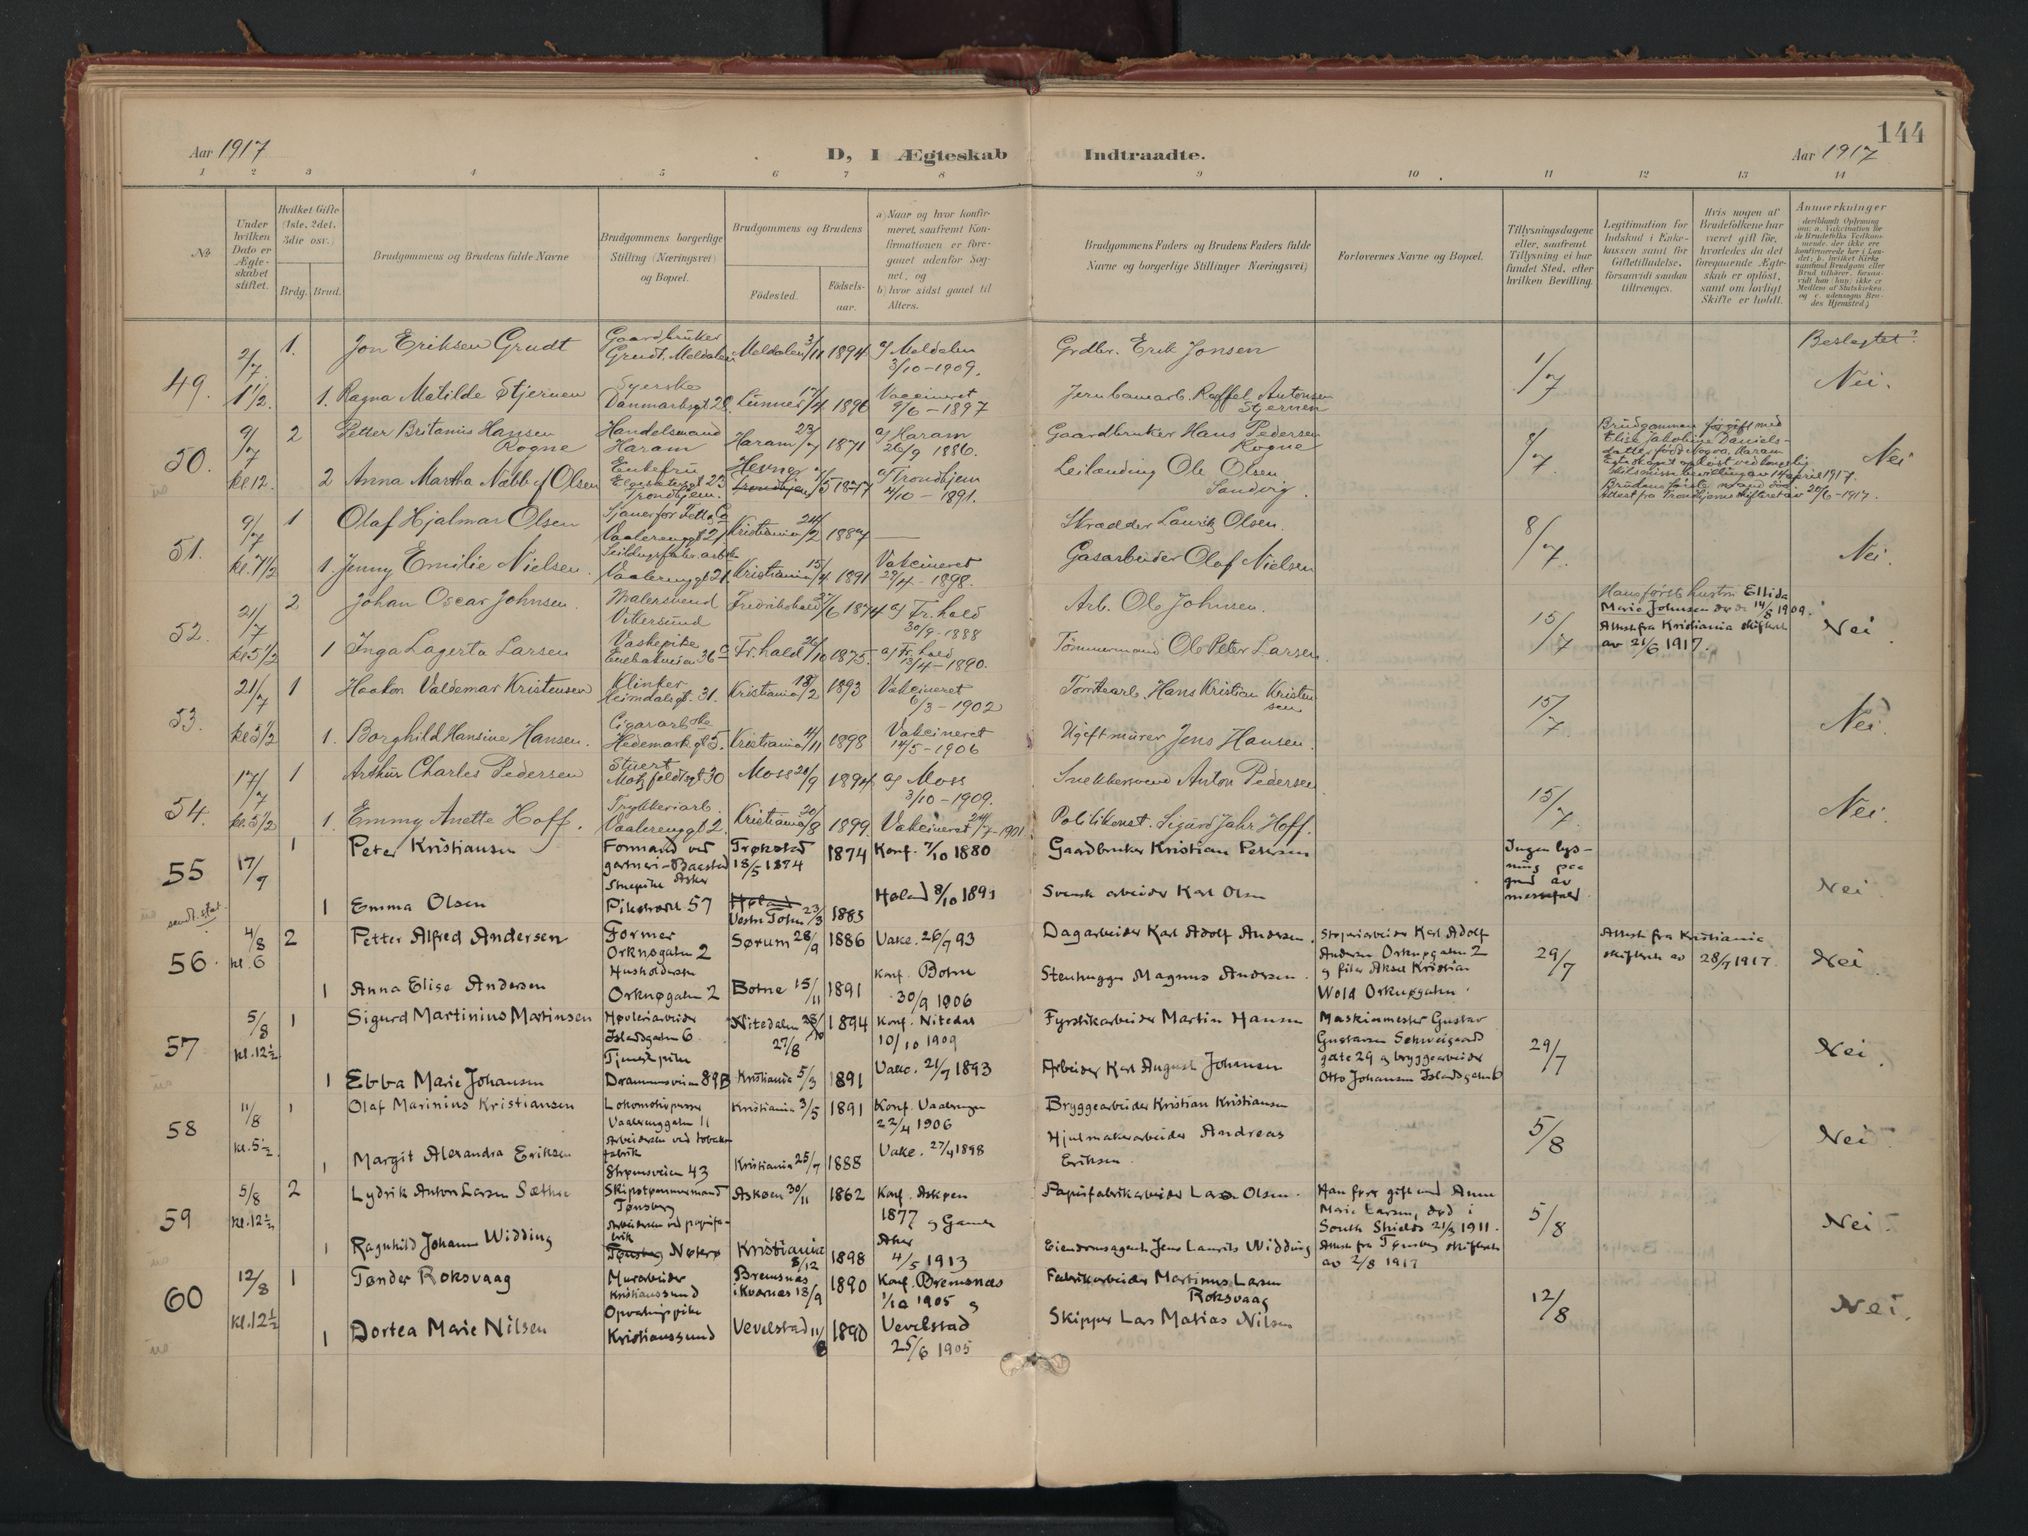 144
Aar 1917
D, I Ægteskab Indtraadte.
Aar 1917
1 2 3 4 5 6 7 8 9 10 11 12 13 14
No
Under hvilken Dato er Ægteskabet stiftet.
Hvilket Gifte (1ste, 2det, 3die osv.)
Brdg. Brud.
Brudgommens og Brudens fulde Navne
Brudgommens borgerlige Stilling (Næringsvei) og Bopæl.
Brudgommens og Brudens
Fødested.
Fødselsaar.
a) Naar og hvor konfirmeret, saafremt Konfirmationen er foregaaet udenfor Sognet, og
b) hvor sidst gaaet til Alters.
Brudgommens Faders og Brudens Faders fulde Navne og borgerlige Stillinger Næringsvei)
Forlovernes Navne og Bopæl.
Tillysningsdagene eller, saafremt Tillysning ei har fundet Sted, efter hvilken Bevilling.
Legitimation for Indskud i Enkekassen samt for Giftetilladelse, forsaavidt saadan tiltrænges.
Hvis nogen af Brudefolkene har været gift før, hvorledes da det foregaaende Ægteskab er opløst, samt om lovligt Skifte er holdt.
Anmerkninger
Beslegtet?
49. 2/7 1. Jon Eriksen Grudt Gaardbruker Grudt, Meldalen Meldalen 3/11 1894 a/ Meldalen 3/10-1909. Grdbr. Erik Jonsen 1/7 Nei.
1 1/2 1. Ragna Matilde Stjernen Syerske Danmarksgt 28. Lunner 17/4 1896 Vaccineret 9/6-1897 Jernbanearb. Raffel Antonsen Stjernen
50. 9/7 2 Petter Britanus Hansen Rogne Handelsmand Haram Haram 23/7 1871 a/ Haram 26/9 1886. Gaardbruker Hans Pedersen Rogne 8/7 Nei
Brudgommen før gift med Elise Jakobine Danielsdatter født Nogva, Haram
14 april 1917.
Attest fra Trondhjems skifteret av 20/6-1917.
kl 12. 2 Anna Martha Nebb f Olsen Enkefru Trondhjem. Hevne Trondhjem 1877 a/ Trondhjem 4/10-1891. Leilænding Ole Olsen Sandvig.
51. 9/7 1 Olaf Hjalmar Olsen Vaalerenggt 21 Kristiania 24/2 1887 — Skrædder Lauritz Olsen. 8/7 Nei.
kl. 7 1/2 1. Jenny Emilie Nielsen. Seildugsfabr. arb. Vaalerenggt 21. Kristiania 15/4 1891 Vakcineret 27/4-1898. Gasarbeider Olaf Nielsen
52. 21/7 2 Johan Oscar Johnsen. Malersvend Vikersund Fredrikshald 27/6 1874 a/ Fr.hald 30/9-1888 Arb. Ole Johnsen. 15/7 Nei
Hans første hustru Ellida Marie Johnsen døde 14/8 1909.
Attest fra Kristiania skifteret av 21/6 1917.
kl 5 1/2 1 Inga Lagerta Larsen Vaskepike Enebakveien 36 c Fr.hald 26/10 1875. a/ Fr.hald 13/4-1890. Tømmermand Ole Peter Larsen.
53. 21/7 1 Haakon Valdemar Kristensen Klinker Heimdalsgt. 31. Kristiania 18/2 1893 Vakcineret 6/3-1902 Tomtearb. Hans Kristian Kristensen 15/7 Nei.
kl 5 1/2 1. Borghild Hansine Hansen. Cigararbske Hedemarksgt 5. Kristiania 4/11 1898 Vakcineret 14/5-1906 Ugift murer Jens Hansen.
54. 17/7 1 Arthur Charles Pedersen Stuert Motzfeldtsgt 30 Moss 20/9 1894 a/ Moss 3/10-1909. Snekkersvend Anton Pedersen 15/7 Nei.
kl. 5 1/2 1. Emmy Anette Hoff. Trykkeriarb. Vaalerenggt 2. Kristiania 20/8 1899 Vakcineret 24/7-1901 Politikonst. Sigurd Jahr Hoff.
55 17/7 1 Peter Kristiansen Formand ved gartneri - Asker Trøkstad 18/5 1874 1874 Konf. 7/10 1880 Gaardbruker Kristian Petersen Ingen lysning paa grund av messefald Nei
1 Emma Olsen Stuepike Pilestræde 57 Høland Vestre Toten 23/3 1885 Høland 8/10 1899 Svensk arbeider Karl Olsen
56. 4/8 kl. 6 2 Petter Alfred Andersen Former Orknøgaten 2 Sørum 28/9 1886 Vakc. 26/7 93 Dagarbeider Karl Adolf Andersen. 29/7 Nei
Karl Adolf Andersen Orknøgaten 2 og filer Aksel Kristian Wold Orknøgaten
Attest fra Kristiania skifteret av 28/7 1917.
1 Anna Elise Andersen Husholderske Orknøgaten 2 Botne 15/11 1891 Konf. Botne 30/9 1906 Stenhugger Magnus Andersen.
57 5/8 kl. 12 1/2 1 Sigurd Martinius Martinsen Høvleriarbeider Islandsgaten 6 Nitedalen 28/10 27/8 1894 Konf. Nitedal 10/10 1909 Fyrstikarbeider Martin Hansen 29/7 Nei.
Maskinmester Gustav Gustavsen Schweigaardsgate 29 og bryggearbeider Otto Johansen Islandsgaten 6
1 Ebba Marie Johansen Tjenestepike Drammensveien 89B Kristiania 5/3 1891 Vakc. 21/7 1893 Arbeider Karl August Johansen
58 11/8 kl. 5 1/2 1 Olaf Marinius Kristiansen Lokomotivpusser Vaalerenggaten 11 Kristiania 3/5 1891 Konf. Vaalerengen 22/4 1906 Bryggearbeider Kristian Kristiansen 5/8 Nei
1 Margit Alexandra Eriksen Arbeiderske ved tobaksfabrik Strømsveien 43 Kristiania 25/7 1888 Vakc. 27/4 1898 Hjulmakerarbeider Andreas Eriksen.
59 5/8 kl. 12 1/2 2 Lydrik Anton Larsen Sæthre Skipstømmermand Tønsberg Askøen 30/11 1862 Konf. Askøen 1877 Papirfabrikarbeider Lars Olsen. 5/8 Nei
Han før gift med Anne Marie Larsen, død i South Shields 21/3 1911. Attest fra Tønsberg skifteret av 2/8 1917
1 Ragnhild Johanne Widding Arbeiderske ved papirfabrik Tønsberg Nøterø Kristiania 8/12 1898 og Gamle Aker 4/5 1913 Eiendomsagent Jens Laurits Widding
60 12/8 kl. 12 1/2 1 Tønder Roksvaag Murarbeider Kristianssund Bremsnæs i Kvernæs 18/9 1890 Konf. Bremsnæs 1/10 1905 og Fabrikarbeider Martinus Larsen Roksvaag 12/8 Nei.
1 Dortea Marie Nilsen Opvartningspike Kristianssund Vevelstad 11/8 1890 Vevelstad 25/6 1905 Skipper Lars Matias Nilsen